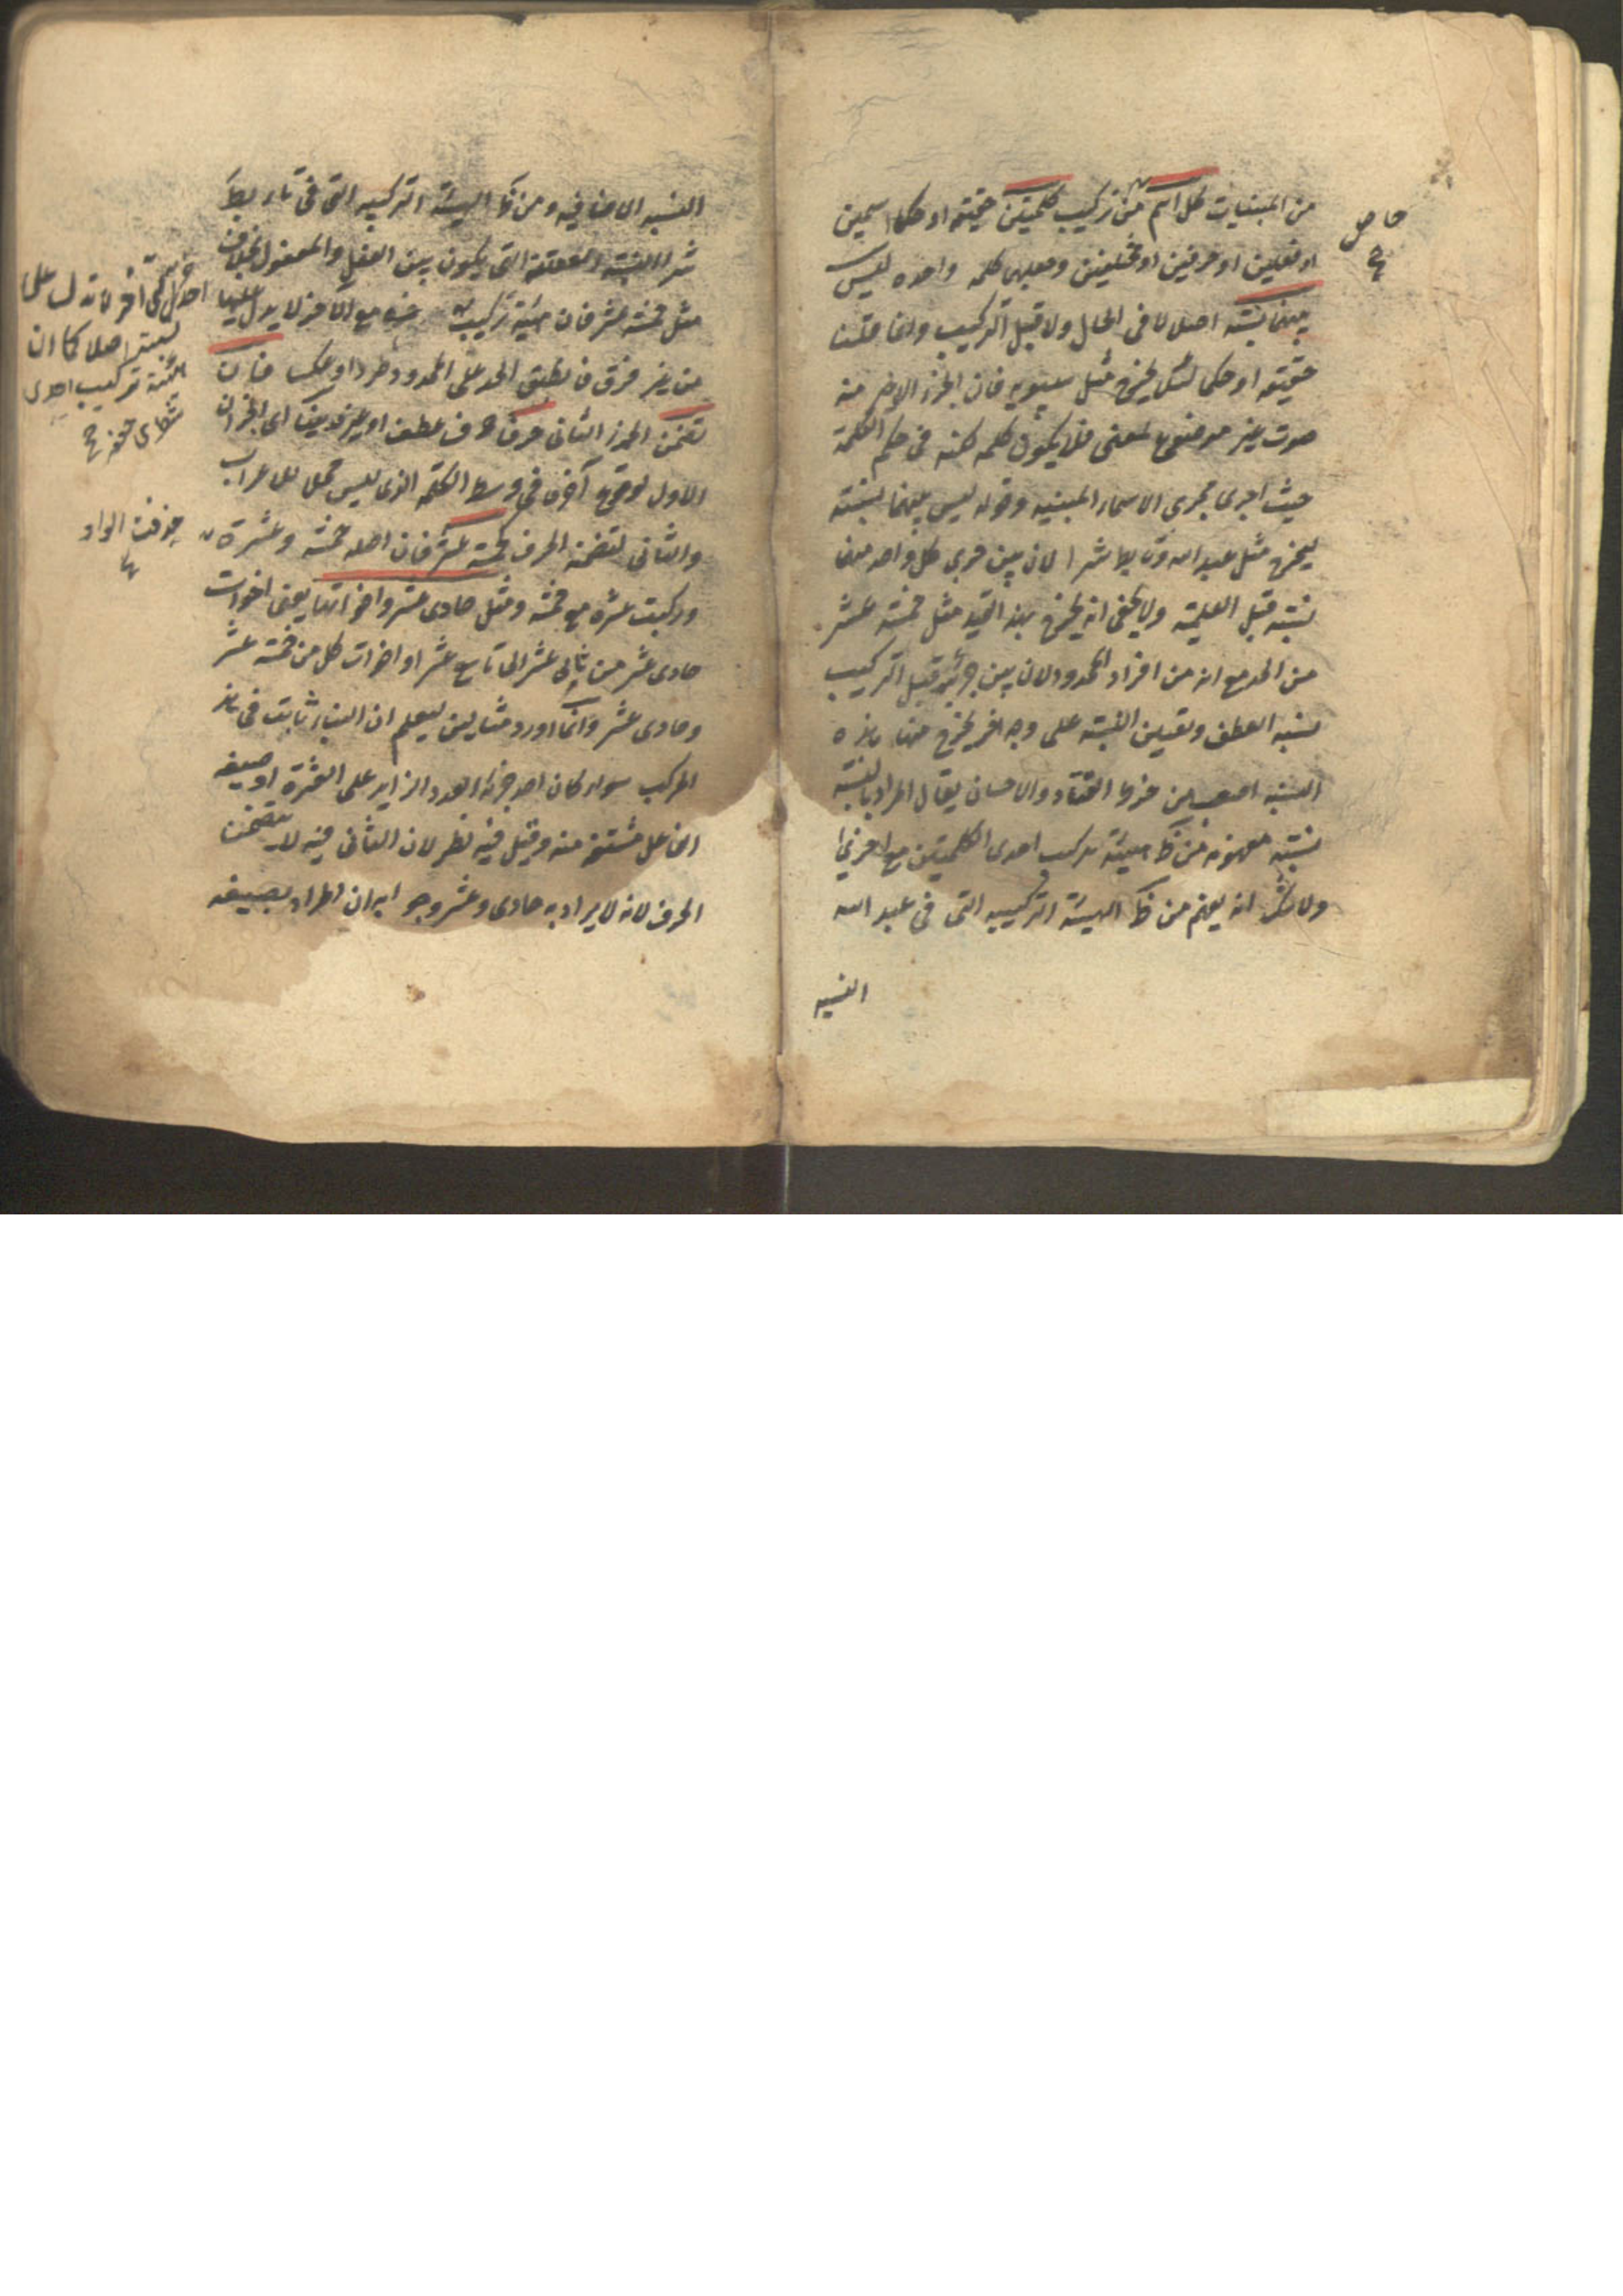 من المبنيات كل اسم من تركيب كلمتين حقيقة او حكما اسمين
او فعلين او حرفين او مختلفين وجعلهما كلمه واحده ليس
بينهما نسبته اصلا لا فى الحال ولا قبل التركيب وانما قلنا
حقيقة او حكما ليخرج مثل سيبويه فان الجزء الاخر منه
صوت غير موضوع لمعنى فلا يكون كلمه لكنه فى حكم الكلمة
حيث اجرى مجرى الاسماء المبنيه وقوله ليس بينهما نسبته
ليخرج مثل عبد الله وتابط شرا لان بين جزئى كل واحد منهما
نسبته قبل العلمية ولا يخفى انه يخرج بهذا القيد مثل خمسة عشر
من الحد مع انه من افراد المحدود لان بين جزئيه قبل التركيب
نسبه العطف وتعيين النسبته على وجه اخر يخرج منها هذه
النسبه اصعب من خرط القتاد والاحسان يقال المراد بالنسبته
نسبته مفهومه من ظ هيئة تركيب احدى الكلمتين مع اخرى
ولا شك انه يعلم من ظ الهيئة التركيبيه التى فى عبد الله
النسبه
حاصل
النسبه الاضافيه ومن ظ الهيئة التركيبيه التى فى تابط
شرا النسبته المتعلقه التى يكون بين الفعل والمفعول بخلاف
مثل خمسة عشر فان هيئة تركيب جزءه مع الاخر لا يدل عليها
من غير فرق فانطبق الحد على المحدود طردا وعكسا فان
تضمن الجزء الثانى حرفا حرف عطف او غيره بنيا اى الجزءان
الاول لوقوع آخره فى وسط الكلمه الذى ليس محلا للاعراب
والثانى لتضمنه الحرف كخمسة عشر فان اصله خمسة وعشرة
وركبت عشرة مع خمسة ومثل حادى عشر واخواتها يعنى اخوات
حادى عشر من ثانى عشر الى تاسع عشر او اخوات كل من خمسة عشر
وحادى عشر وانما اورد مثالين ليعلم ان البناء ثابت فى هذا
المركب سواء كان احد جزئيه العدد الزايد على العشرة او صيغه
الفاعل مشتقه منه وقيل فيه نظر لان الثانى فيه لا يتضمن
الحرف لانه لا يراد به حادى وعشر وجوابه ان المراد بصيغه
نسبته اصلا كما ان
هيئة تركيب احدى
حذفت الواو